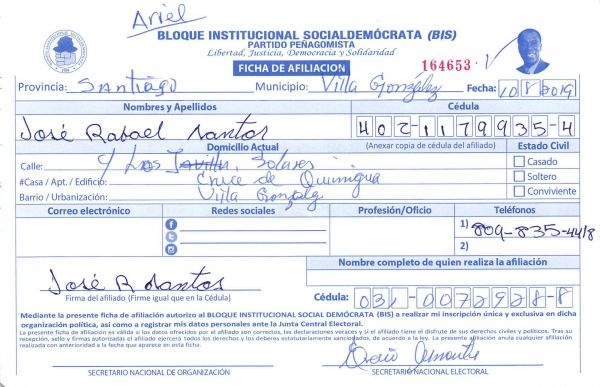 Ariel
BLOQUE INSTITUCIONAL SOCIALDEMÓCRATA (BIS)
PARTIDO PEÑAGOMISTA
Libertad, Justicia, Democracia y Solidaridad
FICHA DE AFILIACION
164653
Provincia: Santiago Municipio: Villa González Fecha: 10/8/2019
Nombres y Apellidos Cédula
José Rafael Santos 402-1179935-4
Domicilio Actual (Anexar copia de cédula del afiliado) Estado Civil
Calle: Los Solares Casado
#Casa / Apt. / Edificio: Cruce de Quinigua Soltero
Barrio / Urbanización: Villa González Conviviente
Correo electrónico Redes sociales Profesión/Oficio Teléfonos
1) 809-835-4418
2)
Nombre completo de quien realiza la afiliación
José R Santos
Firma del afiliado (Firme igual que en la Cédula) Cédula: 031-0072928-8
Mediante la presente ficha de afiliación autorizo al BLOQUE INSTITUCIONAL SOCIAL DEMÓCRATA (BIS) a realizar mi inscripción única y exclusiva en dicha
organización política, así como a registrar mis datos personales ante la Junta Central Electoral.
La presente ficha de afiliación es válida si los datos ofrecidos por el afiliado son correctos, las declaraciones veraces y si el afiliado tiene el disfrute de sus derechos civiles y políticos. Tras su
recepción, sello y firmas autorizadas el afiliado ejercerá todos los derechos y los deberes estatutariamente sancionados, de acuerdo a la ley. La presente afiliación anula cualquier afiliación
realizada con anterioridad a la fecha que aparece en esta ficha.
SECRETARIO NACIONAL DE ORGANIZACIÓN SECRETARIO NACIONAL ELECTORAL